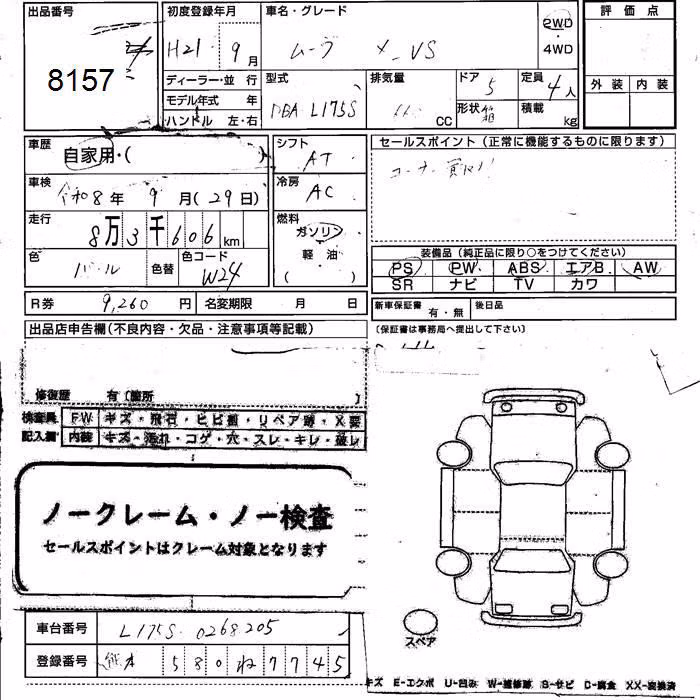 出品番号
8157
初度登録年月
H21. 9月
車名・グレード
ムーヴ
VS
2WD
・
4WD
評価点
外装 内装
ディーラー・並行
モデル年式 年
ハンドル 左・右
型式
DBA-L175S
排気量
CC
ドア
5
形状 箱
定員
4人
積載
kg
車歴
自家用・( )
シフト
AT
セールスポイント(正常に機能するものに限ります)
コーナー
車検
令和8年 9月(29日)
冷房
AC
走行
8万3千606km
燃料
ガソリン
軽・油
( )
色
パール
色替
色コード
W24
装備品(純正品に限り○をつけてください)
PS PW ABS エアB AW
SR ナビ TV カワ
R券 9,260円 名変期限 月 日
新車保証書 有・無 後日品
(保証書は事務局へ提出して下さい)
出品店申告欄(不良内容・欠品・注意事項等記載)
修復歴 有〔箇所 〕
検査員 FW キズ・飛石・ヒビ割・リペア跡・X要
記入欄 内装 キズ・汚れ・コゲ・穴・スレ・キレ・破レ
ノークレーム・ノー検査
セールスポイントはクレーム対象となります
スペア
車台番号 L175S-0268205
登録番号 熊本 580ね7745
キズ E-エクボ U-凹み W-補修跡 S-サビ C-腐食 XX-交換済